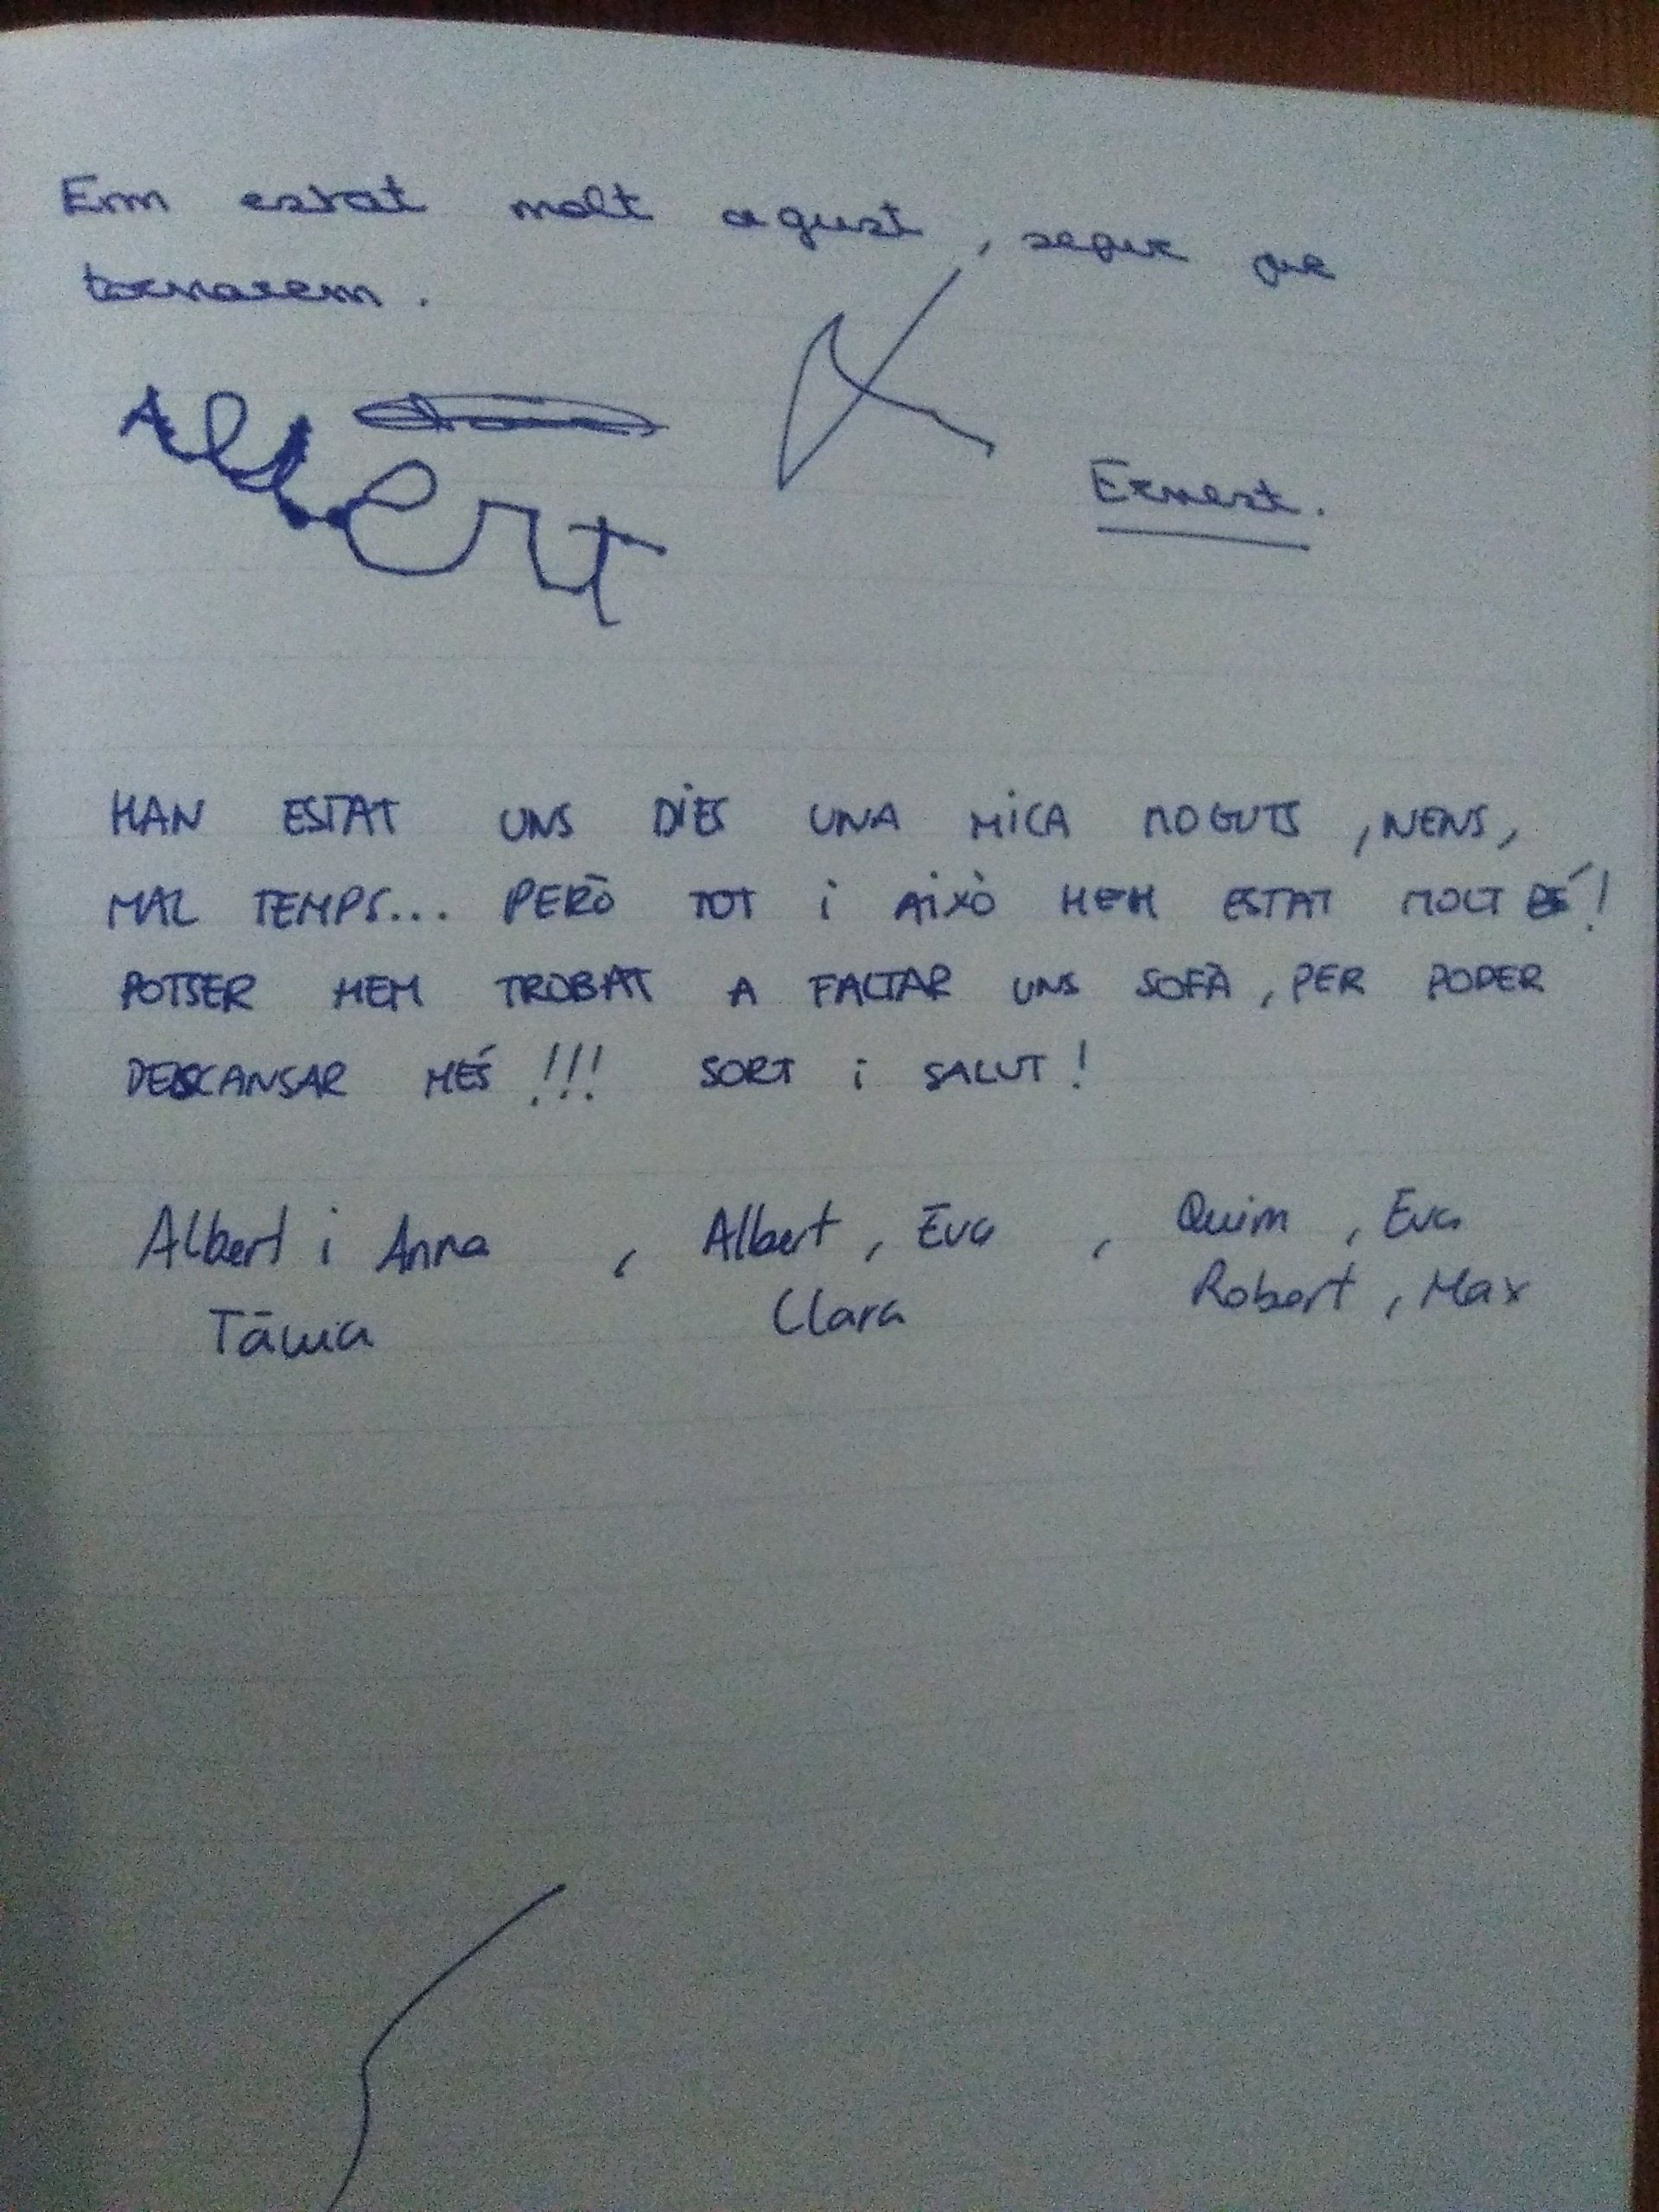 Em estat molt agust, segur que
tornarem.
Albert
Ernest.
HAN ESTAT UNS DIES UNA MICA MOGUTS, NENS,
MAL TEMPS... PERÒ TOT i AiXÒ HEM ESTAT MOLT BÉ!
POTSER HEM TROBAT A FALTAR UNS SOFÀ, PER PODER
DESCANSAR MÉS!!! SORT i SALUT!
Albert i Anna, Albert, Eva, Quim, Eva
Tània Clara Robert, Max